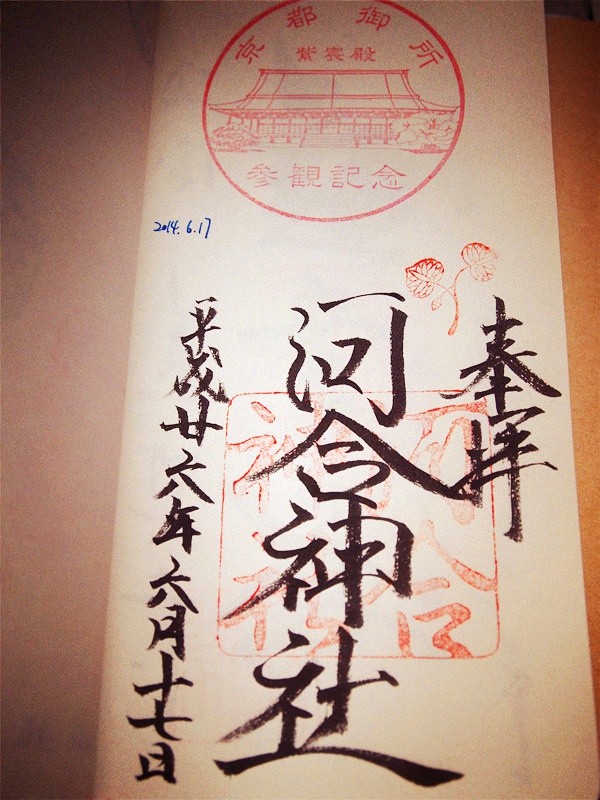 京都御所
紫宸殿
参観記念
2014.6.17
奉拝
河合神社
河合神社
平成廿六年六月十七日